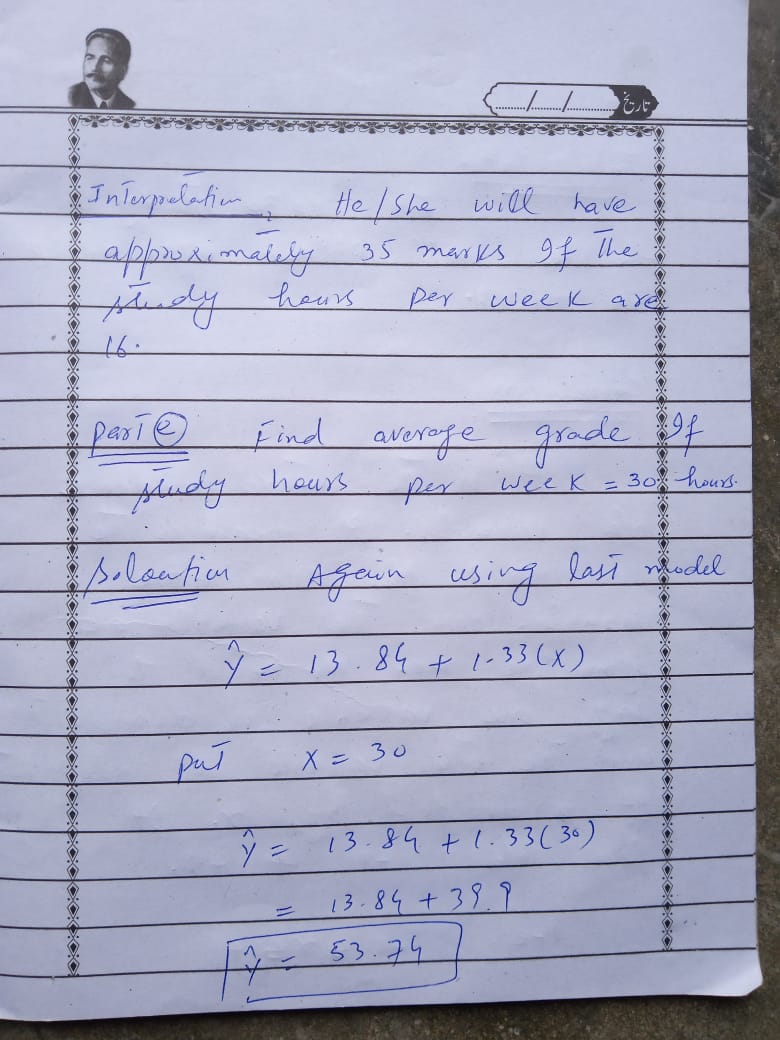 تاریخ
....../....../......
Interpretation, He/She will have
approximately 35 marks If The
study hours per week are
16.
Part (e) Find average grade If
study hours per week = 30 hours.
Soloution Again using last model
ŷ = 13.84 + 1.33(x)
put x = 30
ŷ = 13.84 + 1.33(30)
= 13.84 + 39.9
ŷ = 53.74